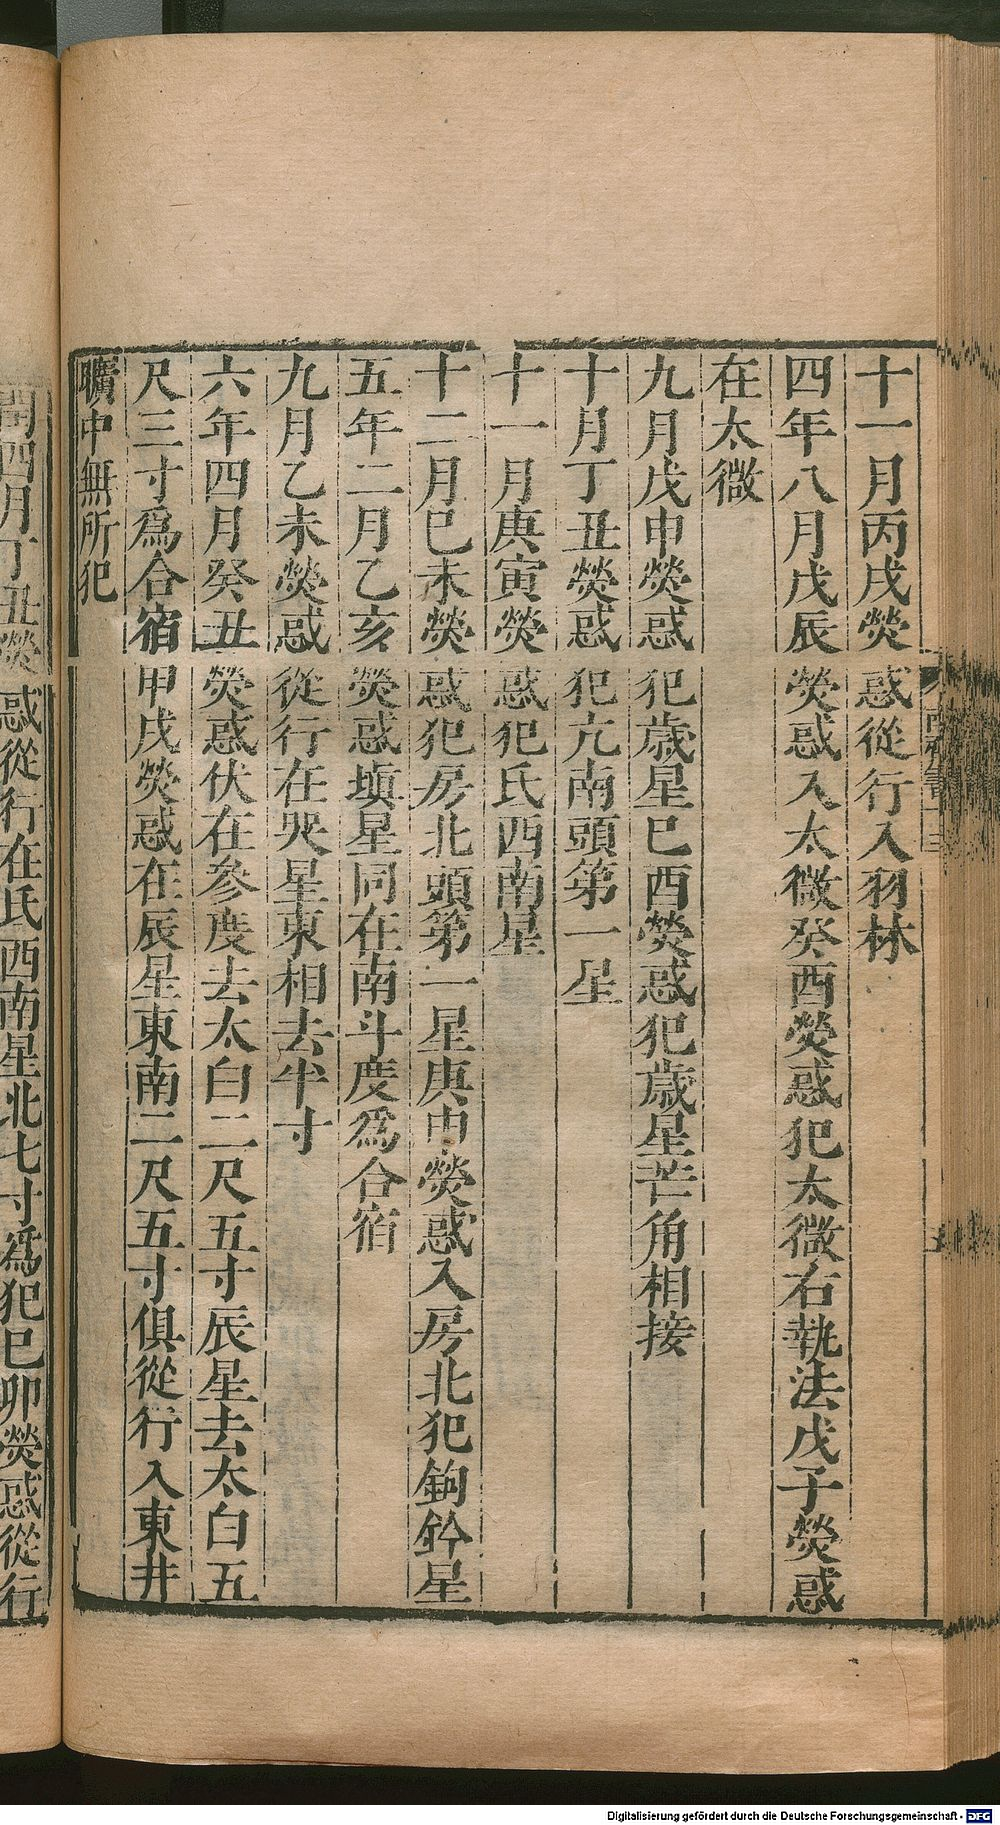 十一月丙戌熒惑從行入羽林
四年八月戊辰熒惑入太微癸酉熒惑犯太微右執法戊子熒惑
在太微
九月戊申熒惑犯歲星已酉熒惑犯歲星芒角相接
十月丁丑熒惑犯亢南頭第一星
十一月庚寅熒惑犯氐西南星
十二月巳未熒惑犯房北頭第一星庚申熒惑入房北犯鉤鈐星
五年二月乙亥熒惑塡星同在南斗度為合宿
九月乙未熒惑從行在哭星東相去半寸
六年四月癸丑熒惑伏在參度去太白二尺五寸辰星去太白五
尺三寸為合宿甲戌熒惑在辰星東南二尺五寸俱從行入東井
曠中無所犯
閏四月丁丑熒惑從行在氐西南星北七寸為犯巳卯熒惑從行
Digitalisierung gefördert durch die Deutsche Forschungsgemeinschaft - DFG